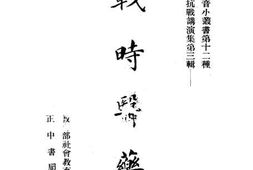 音小叢書第十二種
抗戰講演集第三輯——
戰時醫藥
部社會教育
正中書局